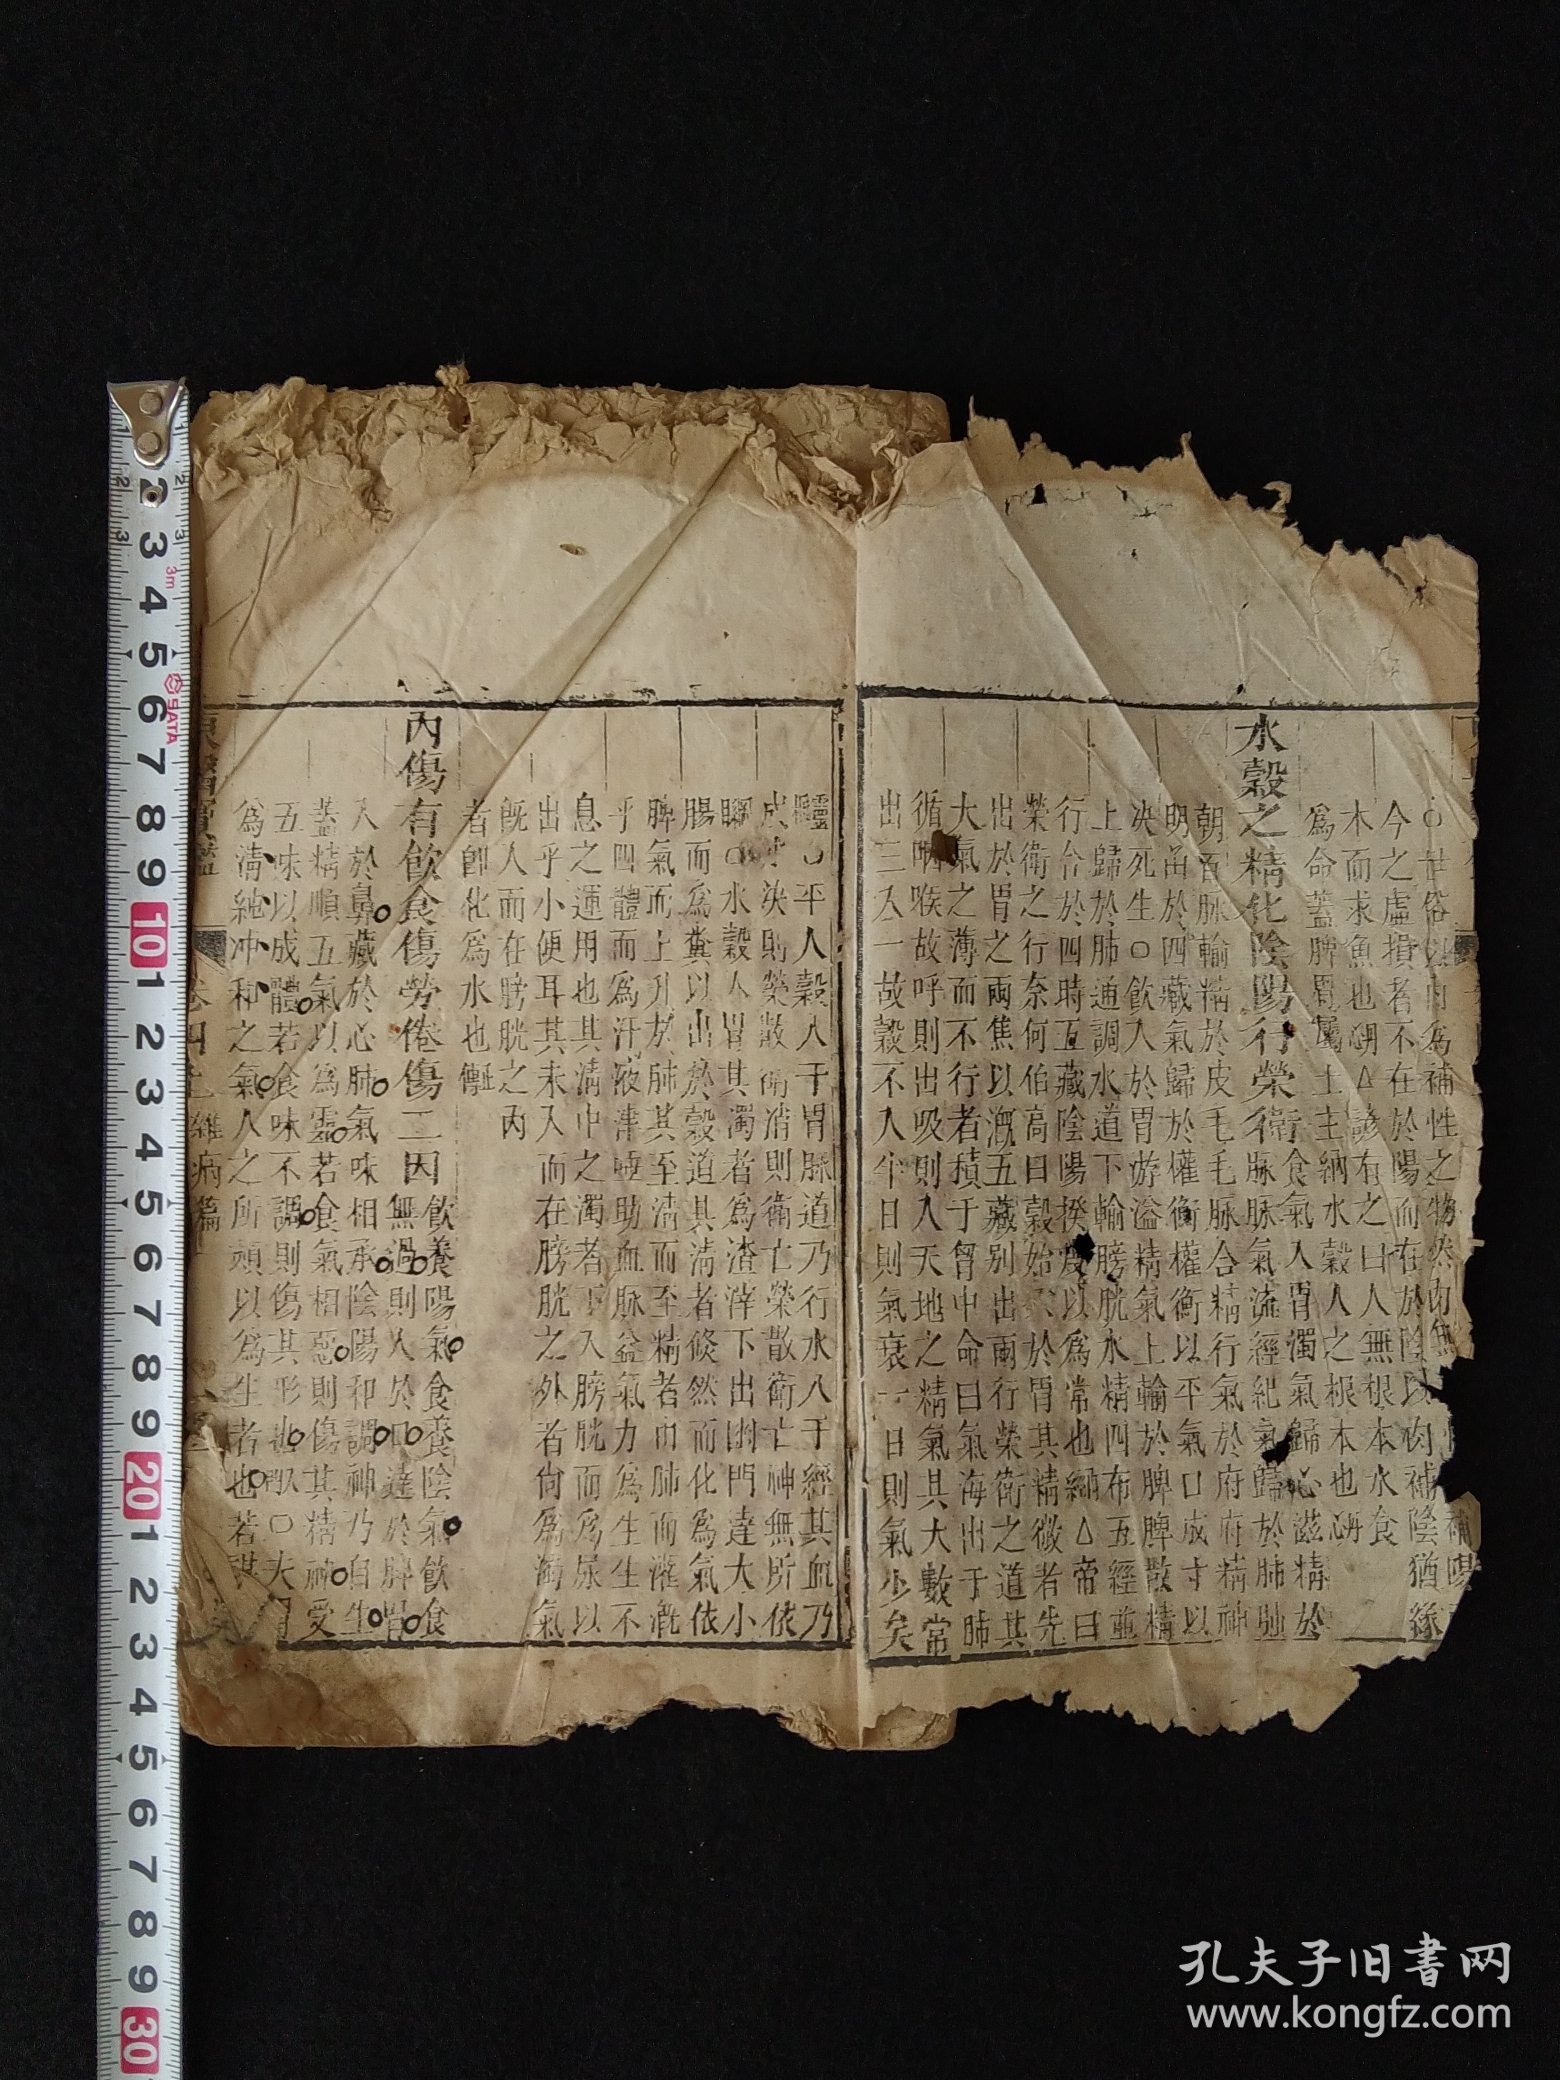 ○世俗以肉爲補性之物然肉無
今之虛損者不在於陽而在於陰以肉補陰猶緣
木而求魚也
諺有之曰人無根本水食
爲命蓋脾胃屬土主納水穀人之根本也
水穀之精化陰陽行榮衛食氣入胃濁氣歸心滋精於
脉脉氣流經經氣歸於肺肺
朝百脉輸精於皮毛毛脉合精行氣於府府精神
明出於四藏氣歸於權衡權衡以平氣口成寸以
决死生○飲入於胃游溢精氣上輸於脾脾散精
上歸於肺通調水道下輸膀胱水精四布五經並
行合於四時五藏陰陽揆度以爲常也 △帝曰
榮衛之行奈何伯高曰穀始 於胃其精微者先
出於胃之兩焦以漑五藏别出兩行榮衛之道其
大氣之薄而不行者積于胷中命曰氣海出于肺
循咽喉故呼則出吸則入天地之精氣其大數常
出三入一故穀不入半日則氣衰一日則氣少矣
○平人穀入于胃脉道乃行水入于經其血乃
成 決則榮散 消則衛亡榮散衛亡神無所依
○水穀人胃其濁者爲渣滓下出幽門達大小
腸而爲糞以出於穀道其清者倏然而化爲氣依
脾氣而上升於肺其至清而至精者由肺而灌漑
乎四體而爲汗液津唾助血脉益氣力爲生生不
息之運用也其清中之濁者下入膀胱而爲尿以
出乎小便耳其未入而在膀胱之外者尙爲濁氣
旣人而在膀胱之內
者卽化爲水也
內傷有飮食傷勞倦傷二因飮養陽氣食養陰氣飮食
無過則人於口達於脾胃
入於鼻藏於心肺氣味相承陰陽和調神乃自生
蓋精順五氣以爲靈若食氣相惡則傷其精神受
五味以成體若食味不調則傷其形也 ○夫
爲清純冲和之氣人之所頼以爲生者也若
卷四
雜病篇
孔夫子旧書网
www.kongfz.com
2 3 4 5 6 7 8 9 10 1 2 3 4 5 6 7 8 9 20 1 2 3 4 5 6 7 8 9 30
3m
SATA